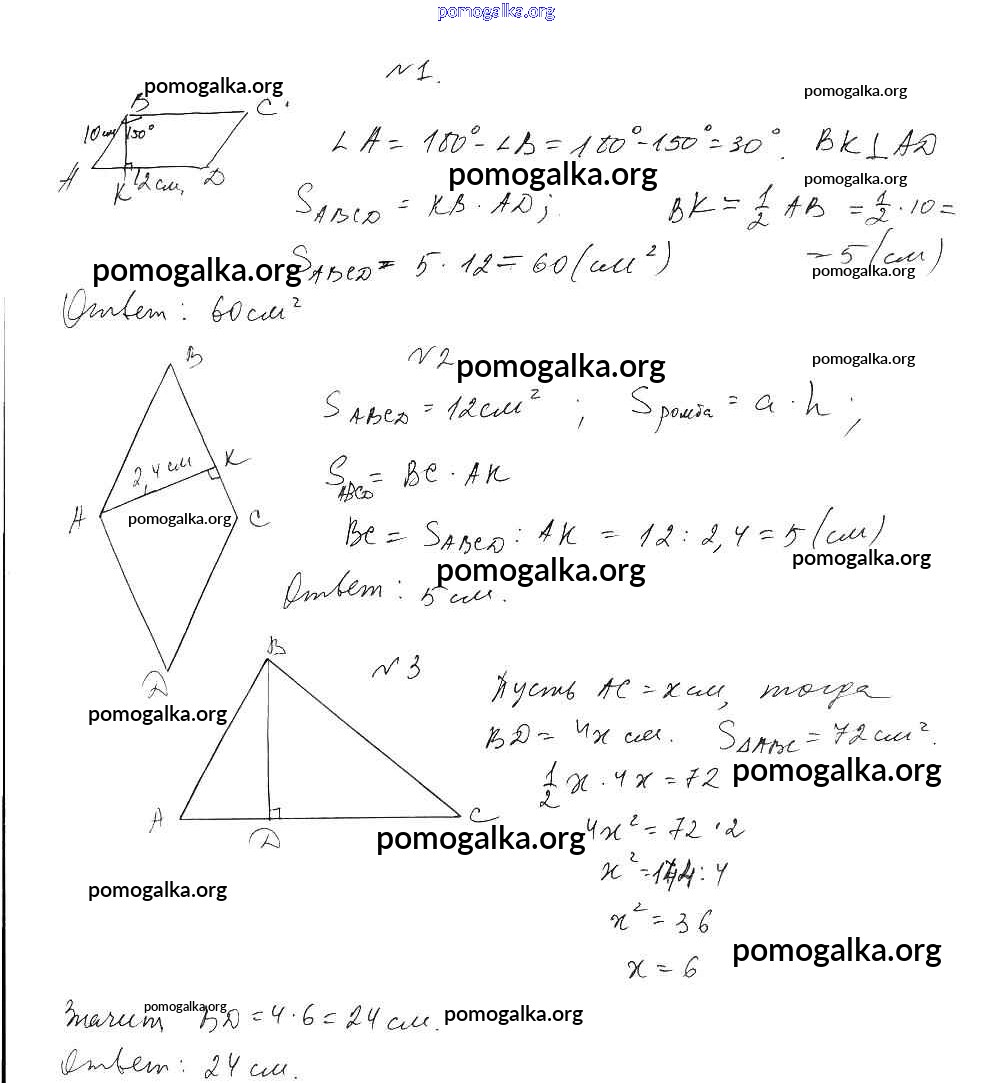 pomogalka.org
№1.
pomogalka.org
pomogalka.org
B C
10 см 150°
A K 12 см, D
∠A = 180° - ∠B = 180° - 150° = 30°. BK ⊥ AD
pomogalka.org
pomogalka.org
S ABCD = KB · AD; BK = 1/2 AB = 1/2 · 10 =
= 5 (см)
pomogalka.org
S ABCD = 5 · 12 = 60 (см²)
pomogalka.org
Ответ: 60 см²
№2
pomogalka.org
pomogalka.org
B
2,4 см K
A C
D
pomogalka.org
S ABCD = 12 см²; S ромба = a · h;
S ABCD = BC · AK
BC = S ABCD : AK = 12 : 2,4 = 5 (см)
pomogalka.org
pomogalka.org
Ответ: 5 см.
№3
B
A D C
pomogalka.org
Пусть AC = x см, тогда
BD = 4x см. S ΔABC = 72 см².
1/2 x · 4x = 72
pomogalka.org
pomogalka.org
4x² = 72 · 2
x² = 144 : 4
pomogalka.org
x² = 36
pomogalka.org
x = 6
pomogalka.org
Значит, BD = 4 · 6 = 24 см.
pomogalka.org
Ответ: 24 см.